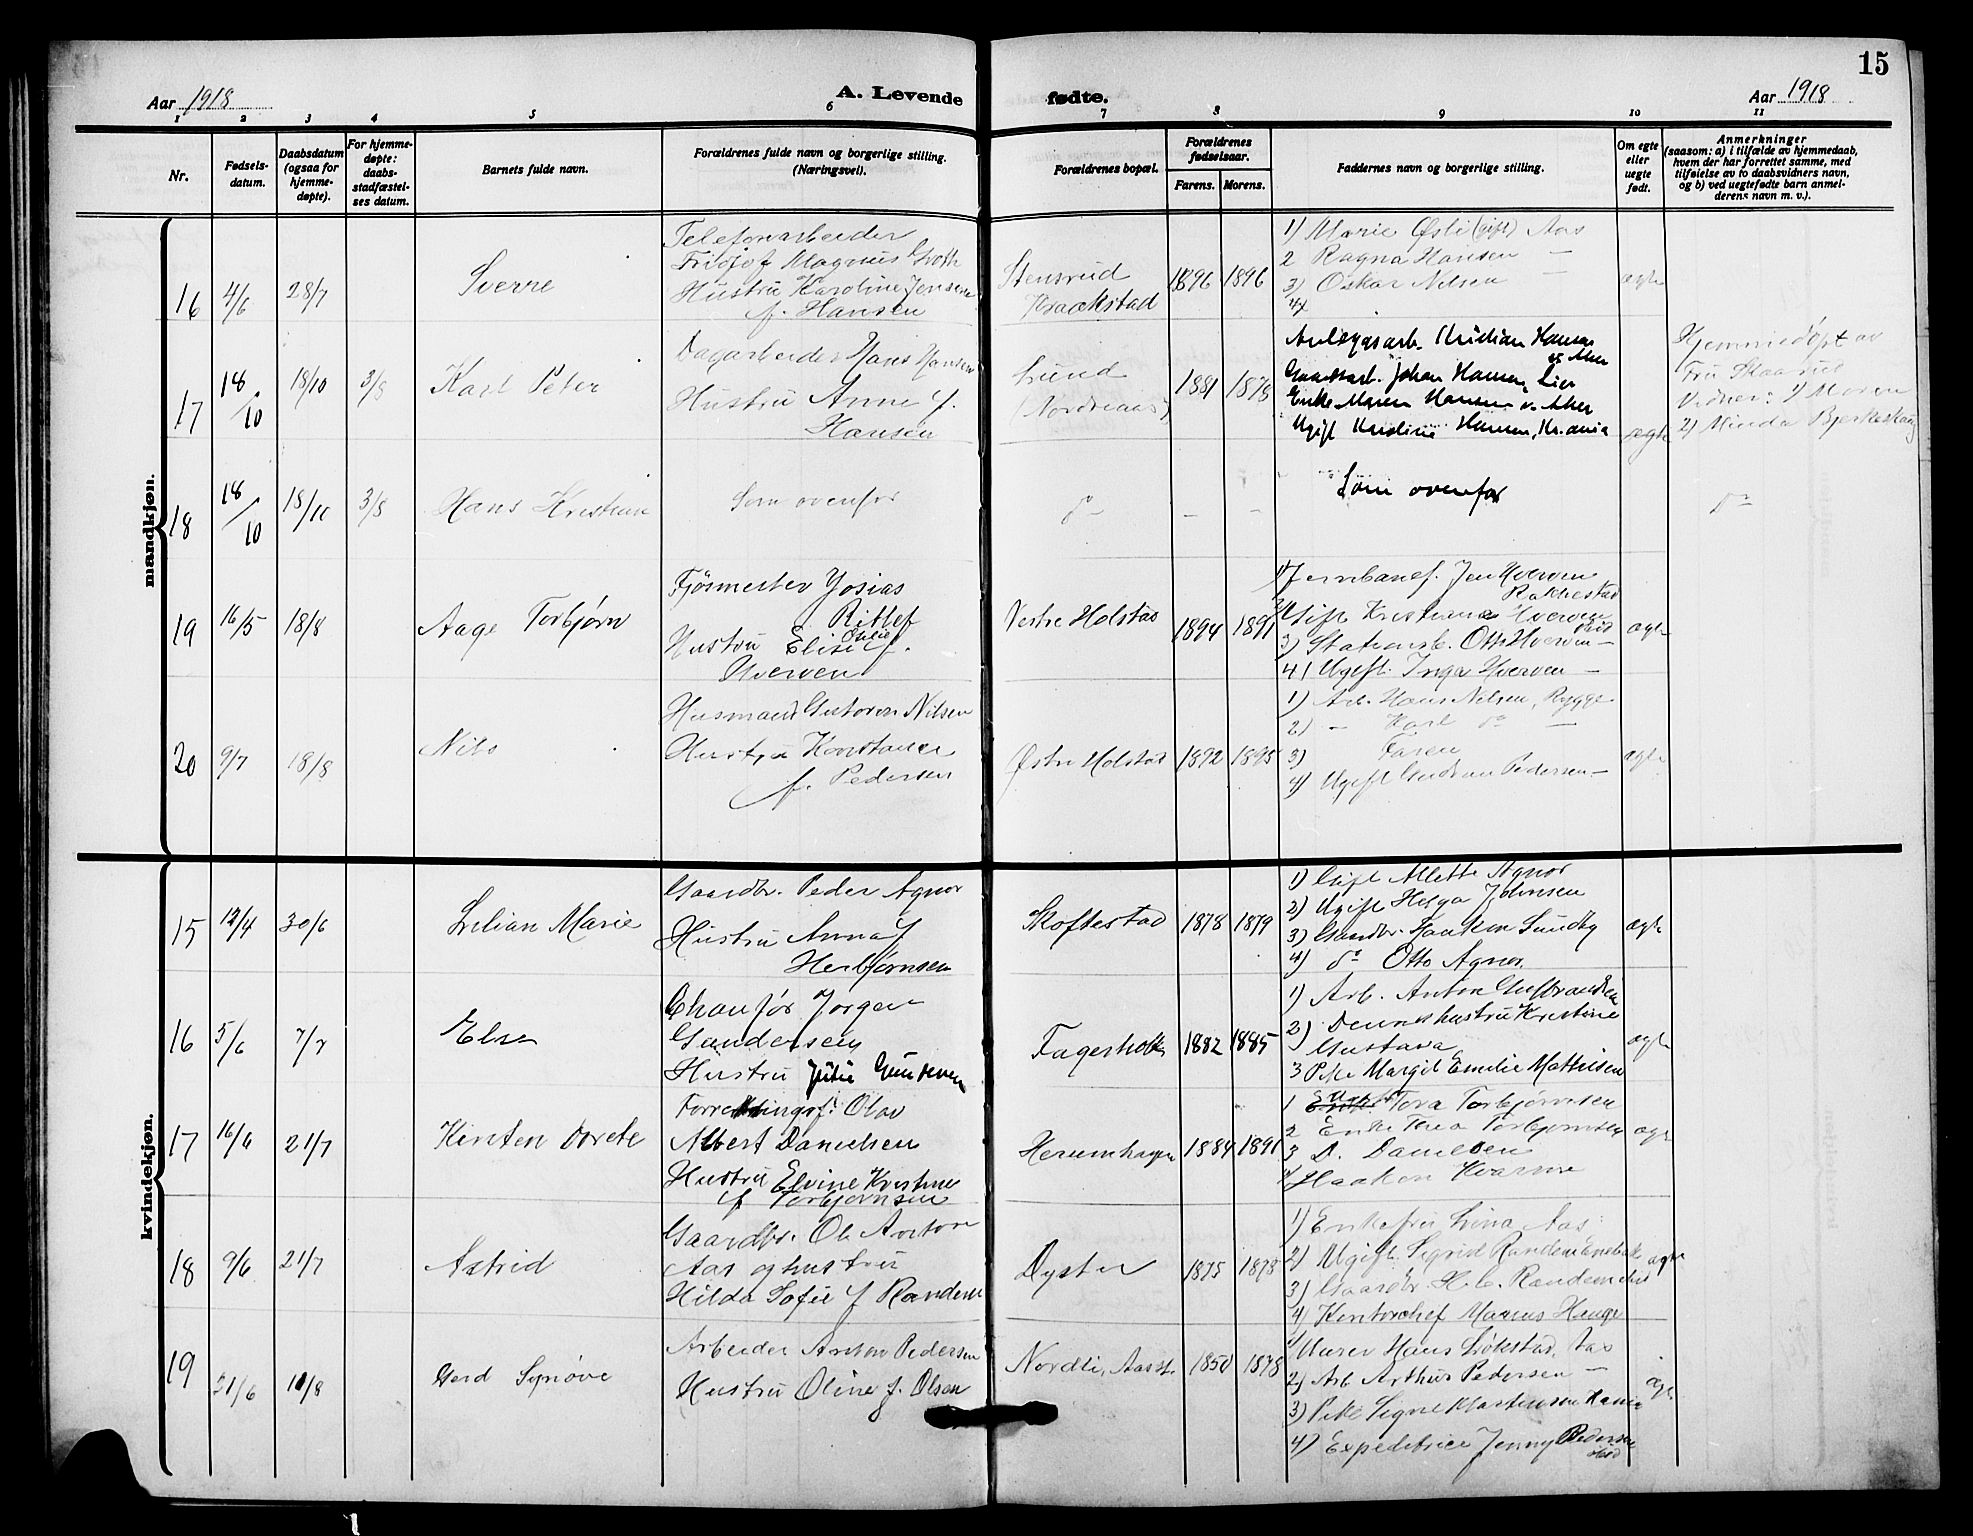 15
Aar 1918 A. Levende fødte. Aar 1918
1 2 3 4 5 6 7 8 9 10 11
Nr.
Fødsels-
datum.
Daabsdatum
(ogsaa for
hjemme-
døpte).
For hjemme-
døpte:
daabs-
stadfæstel-
ses datum.
Barnets fulde navn.
Forældrenes fulde navn og borgerlige stilling.
(Næringsvei).
Forældrenes bopæl.
Forældrenes
fødselsaar.
Farens. Morens.
Faddernes navn og borgerlige stilling.
Om egte
eller
uegte
født.
Anmerkninger
(saasom: a) i tilfælde av hjemmedaab,
hvem der har forrettet samme, med
tilføielse av to daabsvidners navn,
og b) ved uegtefødte barn anmel-
derens navn m. v.).
mandkjøn.
16 4/6 28/7
Sverre
Telefonarbeider
Fridjof Magnus
Hustru Karoline Jensine
f. Hansen
Stensrud
Kraakstad
1896 1896
1) Marie Østi (gift) Aas
2 Ragna Hansen —
3) Oskar Nilsen —
4)
ægte
17 18/10 18/10 3/8
Karl Peter
Dagarbeider Hans Hansen
Hustru Anne f.
Hansen
Lund
(Nordreaas)
1881 1878
Anlægsarb. Kristian Hansen
v. Aker
Gaardsarb. Johan Hansen, Lier
Enke Maren Hansen v. Aker
Ugift Kristine Hansen, Kr.ania
ægte
Hjemmedøpt av
Fru Skaarud
Vidner: 1) Moren
2) Minda
18 18/10 18/10 3/8
Hans Kristian
Som ovenfor
do
— —
Som ovenfor
do
19 16/5 18/8
Aage Torbjørn
Fjøsmester Josias
Ritlef
Hustru Elise Otilie f.
Hverven
Vestre Holstad
1894 1891
1) Jernbanef. Jens Hverven
Rakkestad
2) Gift Kristiane Hverven
3) Stationsb. Otto Hverven —
4) Ugift. Inga Hverven —
ægte
20 9/7 18/8
Nils
Husmand Gustav Nilsen
Hustru Konstance
f. Pedersen
Østre Holstad
1892 1895
1) Arb. Hans Nilsen, Rygge
2) — Karl do —
3) Faren
4) Ugift Gudrun Pedersen —
ægte
kvindekjøn.
15 12/4 30/6
Lilian Marie
Gaardbr. Peder Agnor
Hustru Anna f
Herbjørnsen
Skoftestad
1878 1879
1) Gift Allette Agnor
2) Ugift Helga Johnsen
3) Gaardbr. Haakon Sundby
4) do Otto Agnor.
ægte
16 5/6 7/7
Else
Chaufør Jørgen
Gundersen
Hustru Julie Gundersen
Fagerholt
1882 1885
1) Arb. Anton Gulbrandsen
2) Dennes hustru Kristine
Gustava
3 Pike Margit Emilie Mathisen
ægte
17 16/6 21/7
Kirsten Dorete
Forretningsf. Olav
Albert Danielsen
Hustru Elvine Kristine
f Torbjørnsen
Herumhagen
1884 1891
1 Tora Torbjørnsen
2 Enke Thea Torbjørnsen
3 D. Danielsen
4) Haakon Kvarme
ægte
18 9/6 21/7
Astrid
Gaardbr. Ole Anton
Aas og hustru
Hilda Sofie f Randem
Dyster
1875 1878
1) Enkefru Lina Aas
2) Ugift Sigrid Randem Enebak
3) Gaardbr. H. C. Randem
4) Kontorchef Marius Hauge
ægte
19 21/6 11/8
Gerd Synøve
Arbeider Anton Pedersen
Hustru Oline f. Olsen
Nordli, Aas st.
1850 1878
1) Murer Hans Løkstad, Aas
2) Arb Arthur Pedersen —
3) Pike Signe Mortensen Kania
4) Expeditrice Jenny Pedersen
ægte